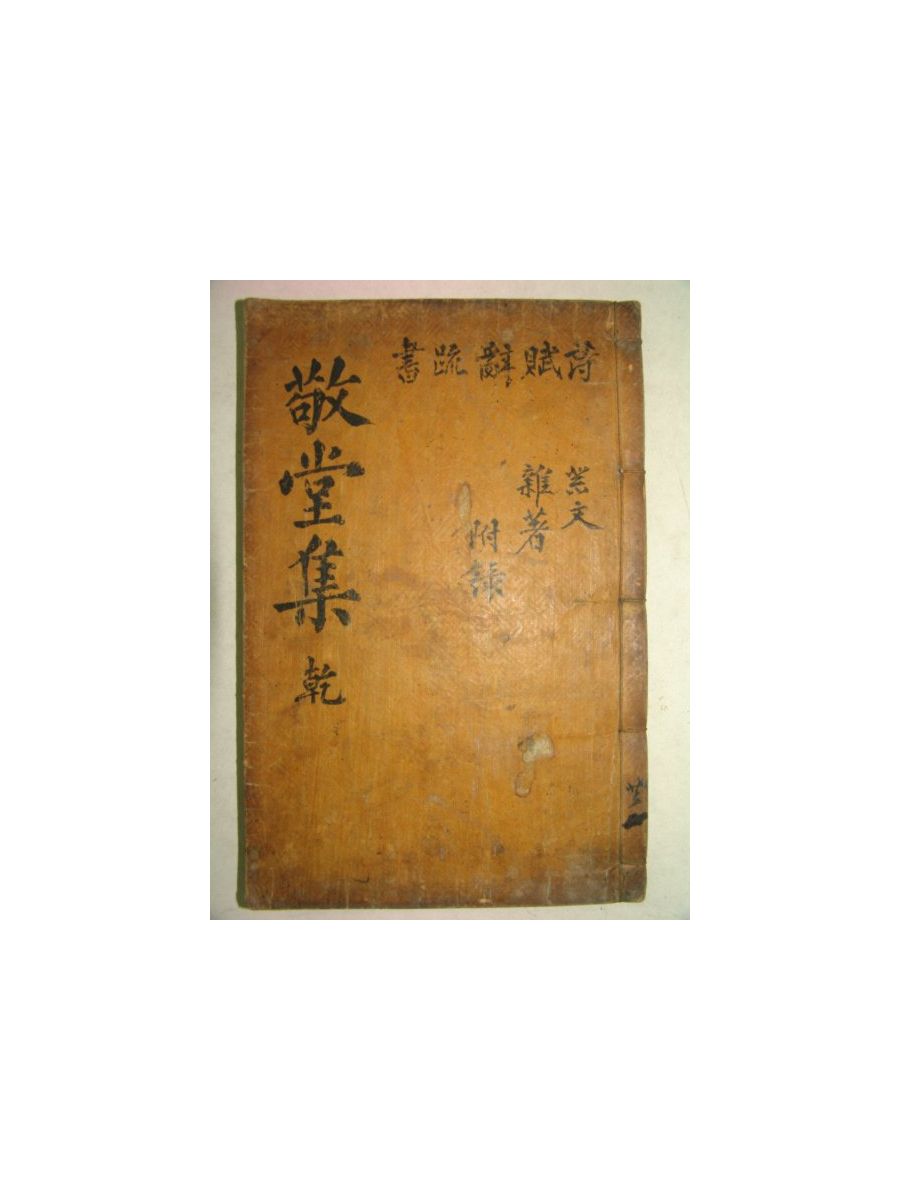 敬堂集 乾
詩賦辭疏書
祭文
雜著
附錄
共二